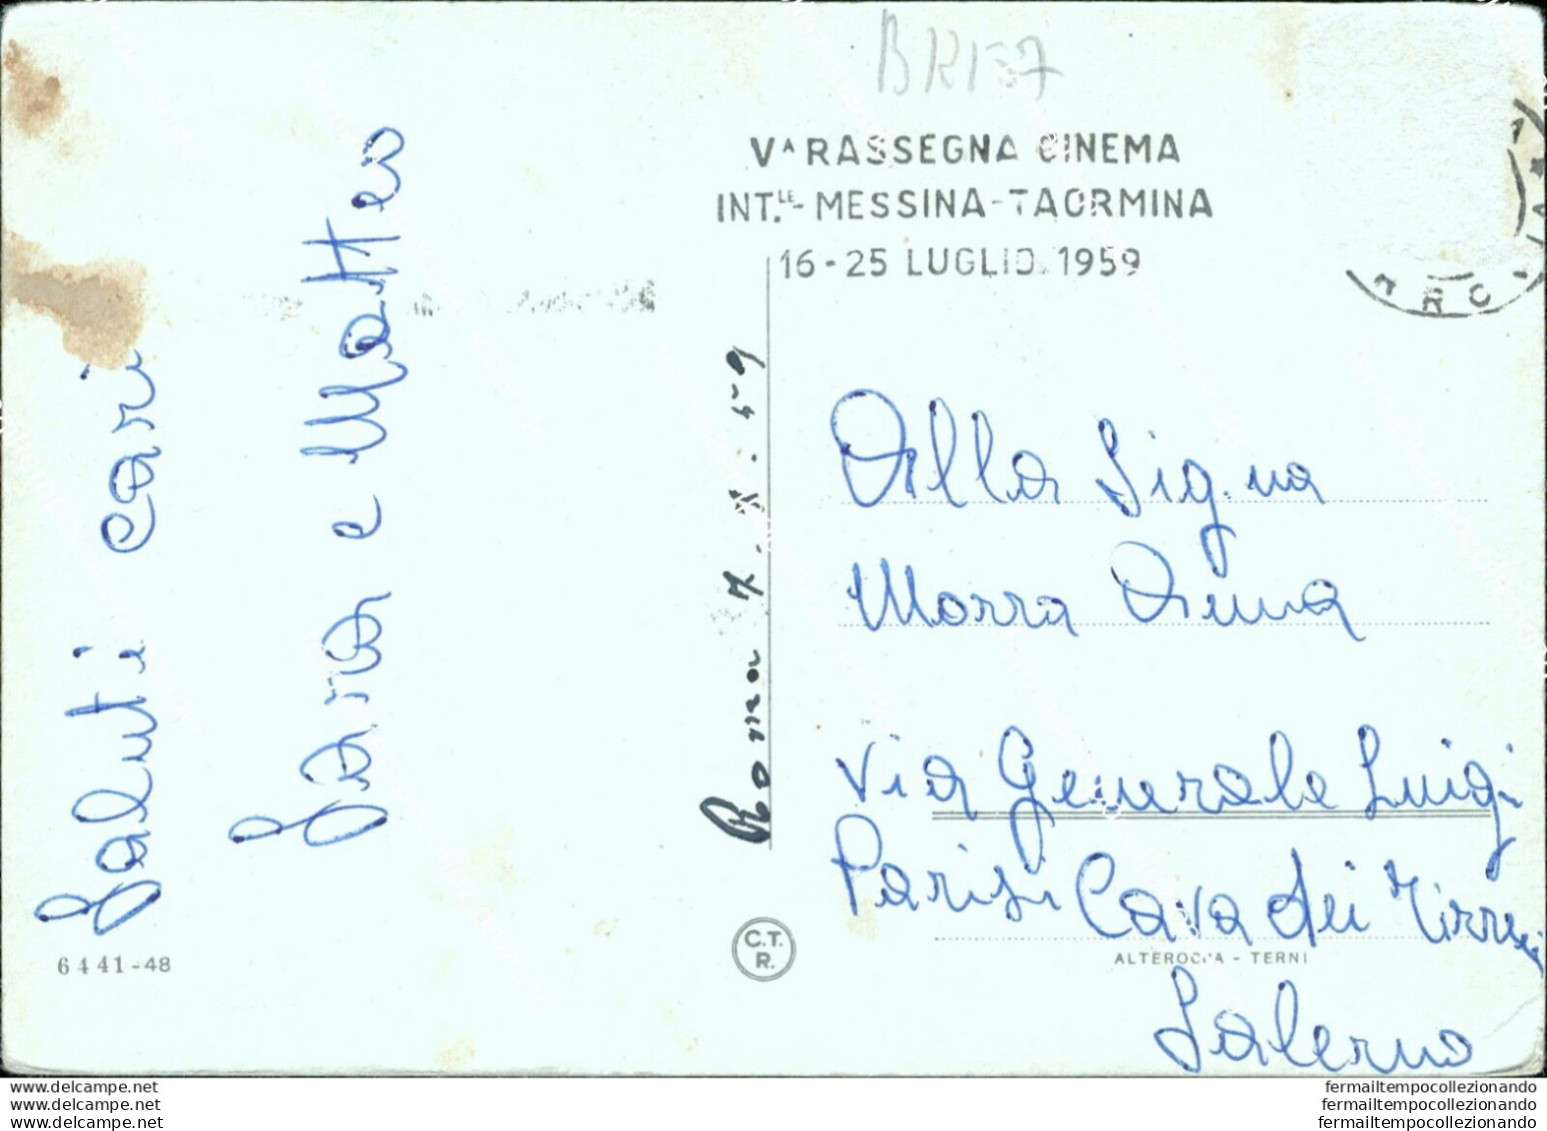 BR157
Vᴬ RASSEGNA CINEMA
INT.ᴸᴱ- MESSINA-TAORMINA
16-25 LUGLIO 1959
Saluti cari
Sara e Matteo
Roma 7.X.59
Alla Sig.na
Morra Anna
Via Generale Luigi
Parisi Cava dei Tirreni
Salerno
6441-48
C.T.
R.
ALTEROCCA - TERNI
www.delcampe.net
www.delcampe.net
www.delcampe.net
fermailtempocollezionando
fermailtempocollezionando
fermailtempocollezionando